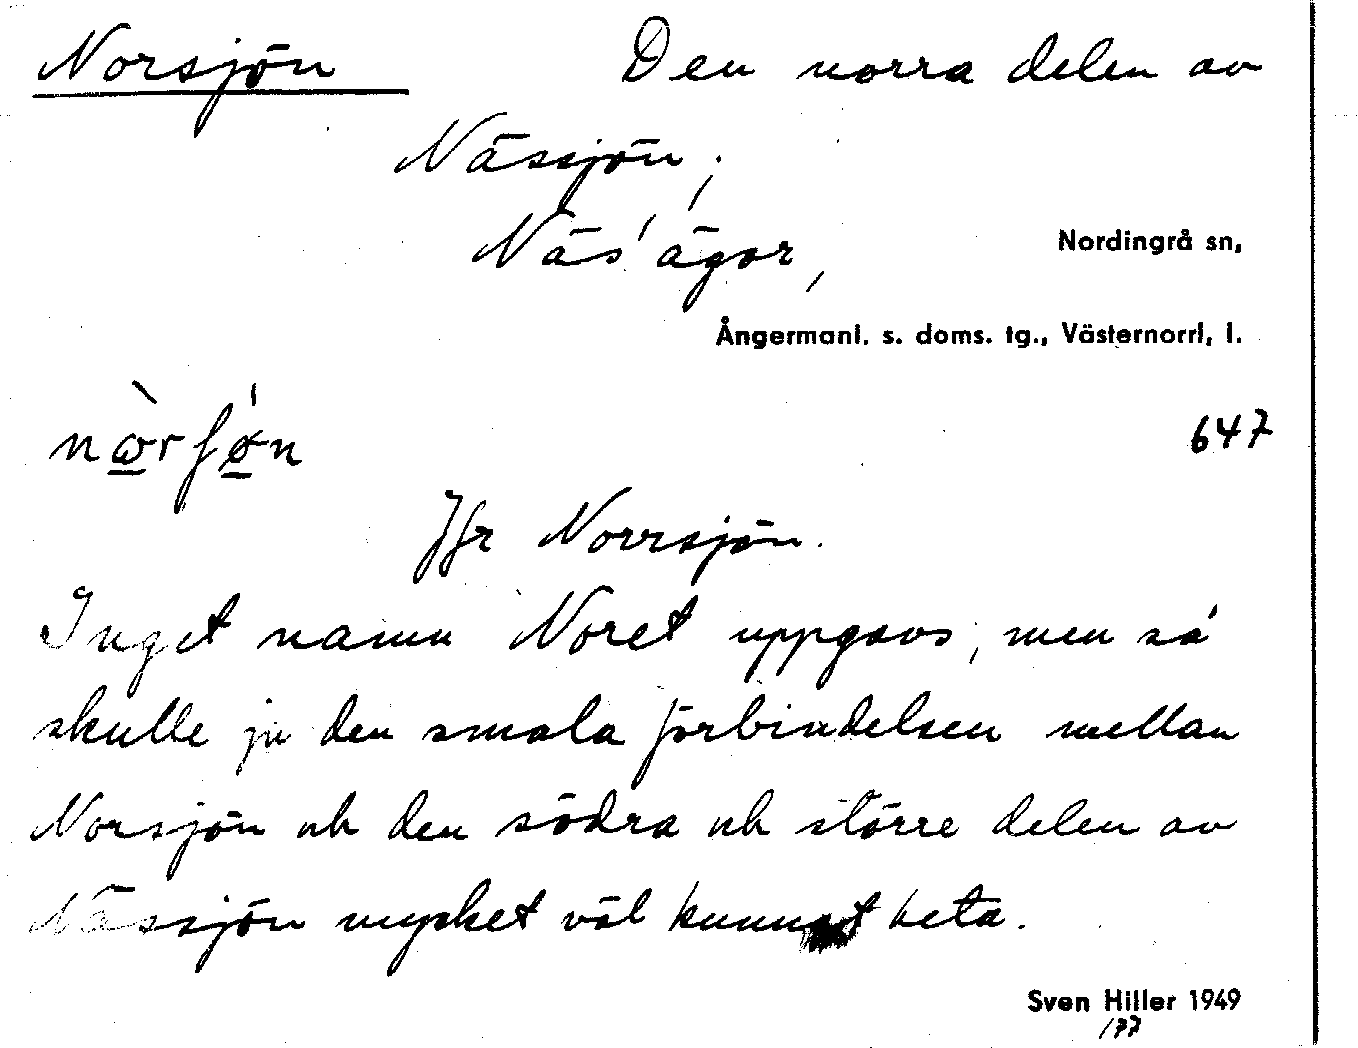 Norsjön Den norra delen av
Nässjön;
Näs' ägor,
Nordingrå sn,
Ångermanl. s. doms. tg., Västernorrl. l.
647
Jfr Norrsjön.
Inget namn Noret uppgavs, men så
skulle ju den smala förbindelsen mellan
Norsjön och den södra och större delen av
Nässjön mycket väl kunnat heta.
Sven Hiller 1949
177